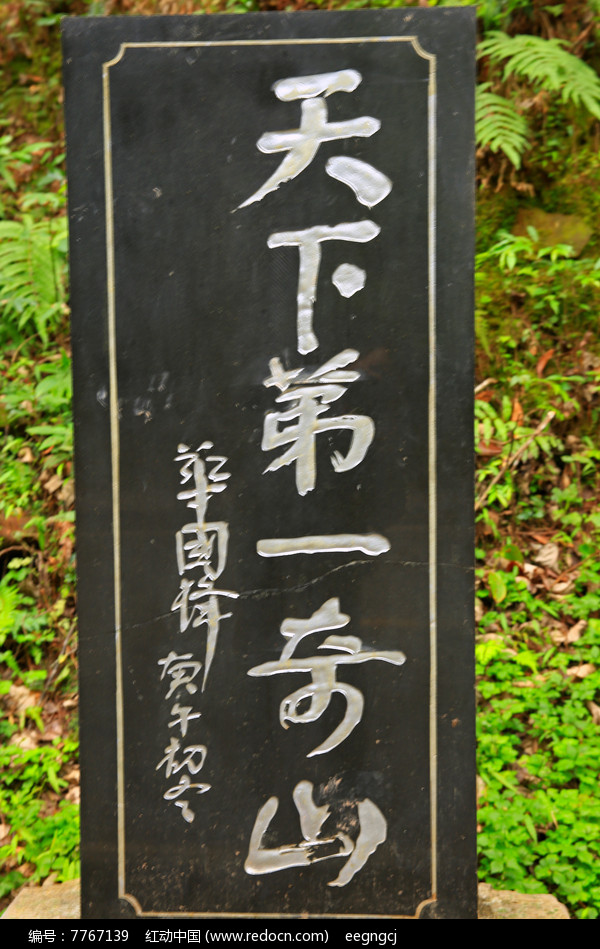 天下第一奇山
華國鋒 庚午初冬
编号：7767139 红动中国 (www.redocn.com) eegngcj